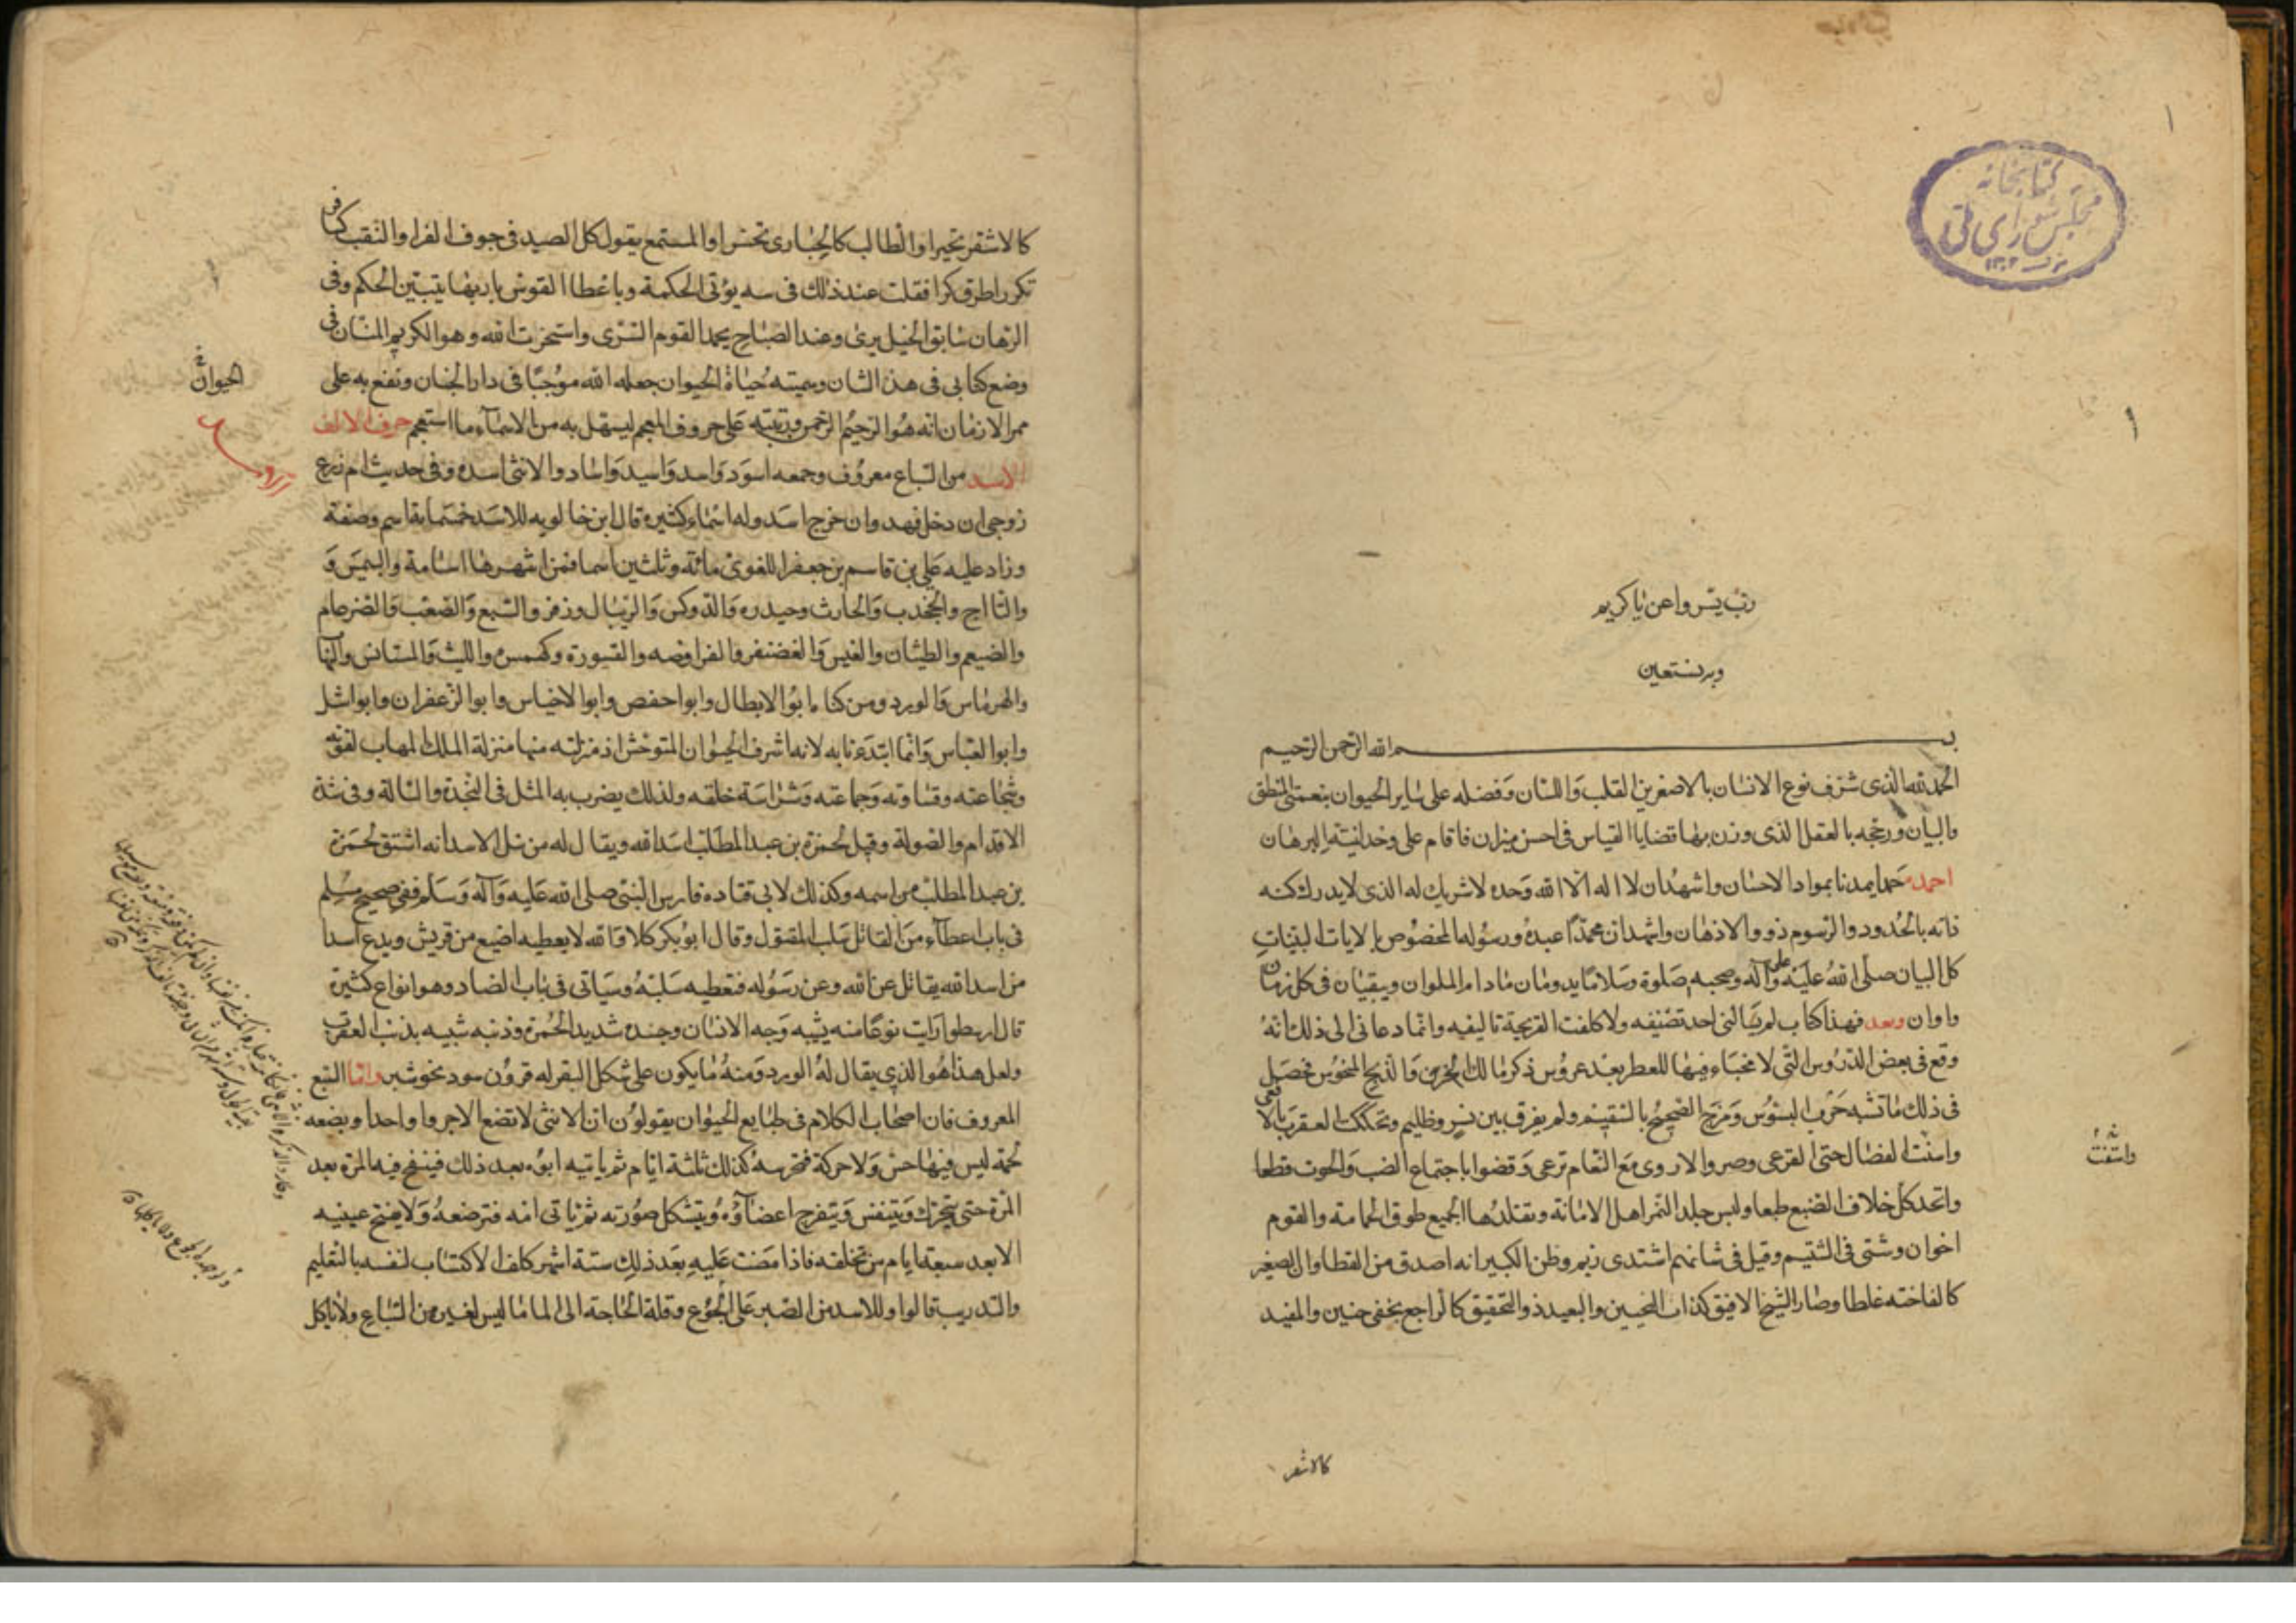 ۱
كتابخانه
مجلس شورای ملی
۱۳۰۲
رب يسر واعن يا كريم
وبه نستعين
بسم الله الرحمن الرحيم
الحمد لله الذى شرف نوع الانسان بالاصغرين القلب واللسان وفضله على ساير الحيوان بنعمتى المنطق
والبيان ورجحه بالعقل الذى وزن بها قضايا القياس فى احسن ميزان فاقام على وحدانيته البرهان
احمده حمدا يمدنا بمواد الاحسان واشهد ان لا اله الا الله وحده لا شريك له الذى لا يدرك كنه
ذاته بالحدود والرسوم ذووا الاذهان واشهد ان محمدا عبده ورسوله المخصوص بالايات البينات
كل البيان صلى الله عليه وعلى آله وصحبه صلوة وسلاما يدومان مادام الملوان ويبقيان فى كل زمان
واوان وبعد فهذا كتاب لم يسالنى احد تصنيفه ولا كلفت القريحة تاليفه وانما دعانى الى ذلك انه
وقع فى بعض الدروس التى لا مخباء فيها للعطر بعد عروس ذكر مالك الحزين والذيخ المنحوس فحصل
فى ذلك ما تشبه حرب البسوس ومزج الصحيح بالسقيم ولم يفرق بين نسر وظليم وتحككت العقرب بالافعى
واسنت الفصال حتى القرعى وصروا الاروى مع النعام ترعى وقضوا باجتماع الضب والحوت قطعا
واستنت
واتخد كل خلاف الضبع طبعا ولبس جلد النمر اهل الامانة وتقلدها الجميع طوق الحمامة والقوم
اخوان وشتى فى الشيم وقيل فى شانهم اشتدى زيم وظن الكبير انه اصدق من القطا وان الصغير
كالفاخته غلطا وصار الشيخ الافيق كذات النحيين والمعيد ذو التحقيق كالراجع بخفى حنين والمفيد
كالاشقر
كالاشقر تحيرا والطالب كالحبارى تحسرا والمستمع يقول كل الصيد فى جوف الفرا والنقيب كصافر
تكرر اطرق كرا فقلت عند ذلك فى بيته يؤتى الحكمة وباعطا القوس باريها يتبين الحكم وفى
الرهان سابق الخيل يرى وعند الصباح يحمد القوم السرى واستخرت الله وهو الكريم المنان فى
وضع كتابى فى هذا الشان وسميته حياة الحيوان جعله الله موجبا فى دار الجنان ونفع به على
الحيوان
ممر الازمان انه هو الرحيم الرحمن ورتبته على حروف المعجم ليسهل به من الاسماء ما استعجم حرف الالف
الاسد من السباع معروف وجمعه اسود واسد واسيد واساد والانثى اسدة وفى حديث ام زرع
زوجى ان دخل فهد وان خرج اسد وله اسماء كثيرة قال ابن خالويه للاسد خمسمائة اسم وصفة
وزاد عليه على بن قاسم بن جعفر اللغوى مائة وثلثين اسما فمن اشهرها اسامة والبيهس و
والتااج والجخدب والحارث وحيدره والدوكس والريبال وزفر والسبع والصعب والضرغام
والضيغم والطيثار والعنبس والغضنفر والفرافصه والقسورة وكهمس والليث والمتانس والمتهيب
والهرماس والورد ومن كناه ابو الابطال وابو حفص وابو الاخياس وابو الزعفران وابو شبل
وابو العباس وانما ابتدءنا به لانه اشرف الحيوان المتوحش اذ منزلته منها منزلة الملك المهاب لقوته
وشجاعته وقساوته وجماعته وشراسة خلقه ولذلك يضرب به المثل فى النجدة والبسالة وفى شدة
الاقدام والصولة وقيل لحمزة بن عبد المطلب اسد الله ويقال له من نبل الاسد انه اشتق لحمزة
بن عبد المطلب من اسمه وكذلك لابى قتاده فارس النبى صلى الله عليه وآله وسلم ففى صحيح مسلم
فى باب اعطاء من القاتل سلب المقتول وقال ابو بكر كلا والله لا يعطيه اضيبع من قريش ويدع اسدا
من اسد الله يقاتل عن الله وعن رسوله فنعطيه سلبه وسياتى فى باب الضاد وهو انواع كثيرة
قال ارسطو رايت نوعا منه يشبه وجه الانسان وجسده شديد الحمرة وذنبه شبيه بذنب العقرب
ولعل هذا هو الذى يقال له الورد ومنه ما يكون على شكل البقر له قرون سود نحو شبر واما السبع
المعروف فان اصحاب الكلام فى طبايع الحيوان يقولون ان الانثى لا تضع الا جروا واحدا وبضعه
لحمة ليس فيها حس ولا حركة فتحرسه كذلك ثلثة ايام ثم ياتيه ابوه بعد ذلك فينفخ فيه المرة بعد
المرة حتى يتحرك ويتنفس ويتفرج اعضاؤه ويتشكل صورته ثم تاتى امه فترضعه ولا يفتح عينيه
الا بعد سبعة ايام من تخلقه فاذا مضت عليه بعد ذلك ستة اشهر كلف الاكتساب لنفسه بالتعليم
والتدريب قالوا وللاسد من الصبر على الجوع وقلة الحاجة الى الماء ما ليس لغيره من السباع ولا ياكل